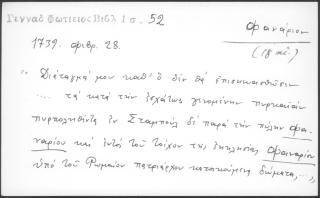 Γενναδ Φωτιείος Βιβλ 1 σ. 52
Φανάριον
(18 αἰ.)
1739. φιβρ. 28.
"Διάταγμά μου καθ' ὃ δὲν θὰ ἐπισκευασθῶσιν
.... τὰ κατὰ τὴν ἐσχάτως γενομένην πυρκαϊὰν
πυρποληθέντα ἐν Σταμποὺλ δὲ παρὰ τὴν πύλην Φα-
ναρίου καὶ ἐντὸς τοῦ τοίχου τῆς ἐκκλησίας Φαναρίου
ὑπὸ τοῦ Ῥωμαίου πατριάρχου κατοικούμενα δώματα,...,